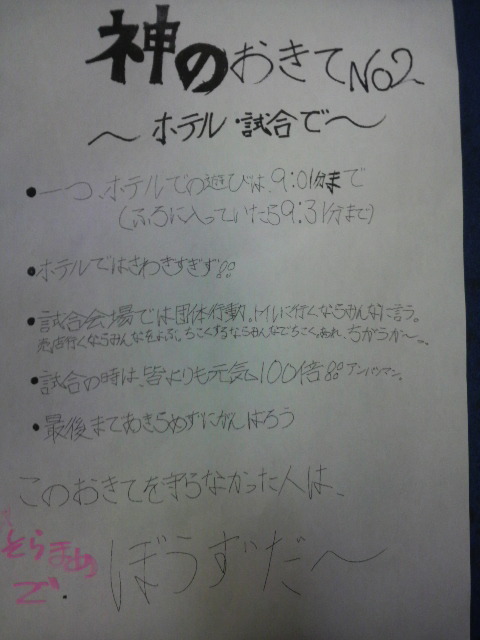 神のおきてNo2
～ホテル・試合で～
●一つ、ホテルでの遊びは、9:01分まで
(ふろに入っていたら9:31分まで)
●ホテルではさわぎすぎず!!
●試合会場では団体行動。トイレに行くならみんなに言う。
売店行くならみんなをよぶ。ちこくするならみんなでちこく。あれ、ちがうが～。
●試合の時は、皆よりも元気100倍!! アンパンマン。
●最後まであきらめずにがんばろう
このおきてを守らなかった人は、
そらまめ
で.
ぼうずだ～